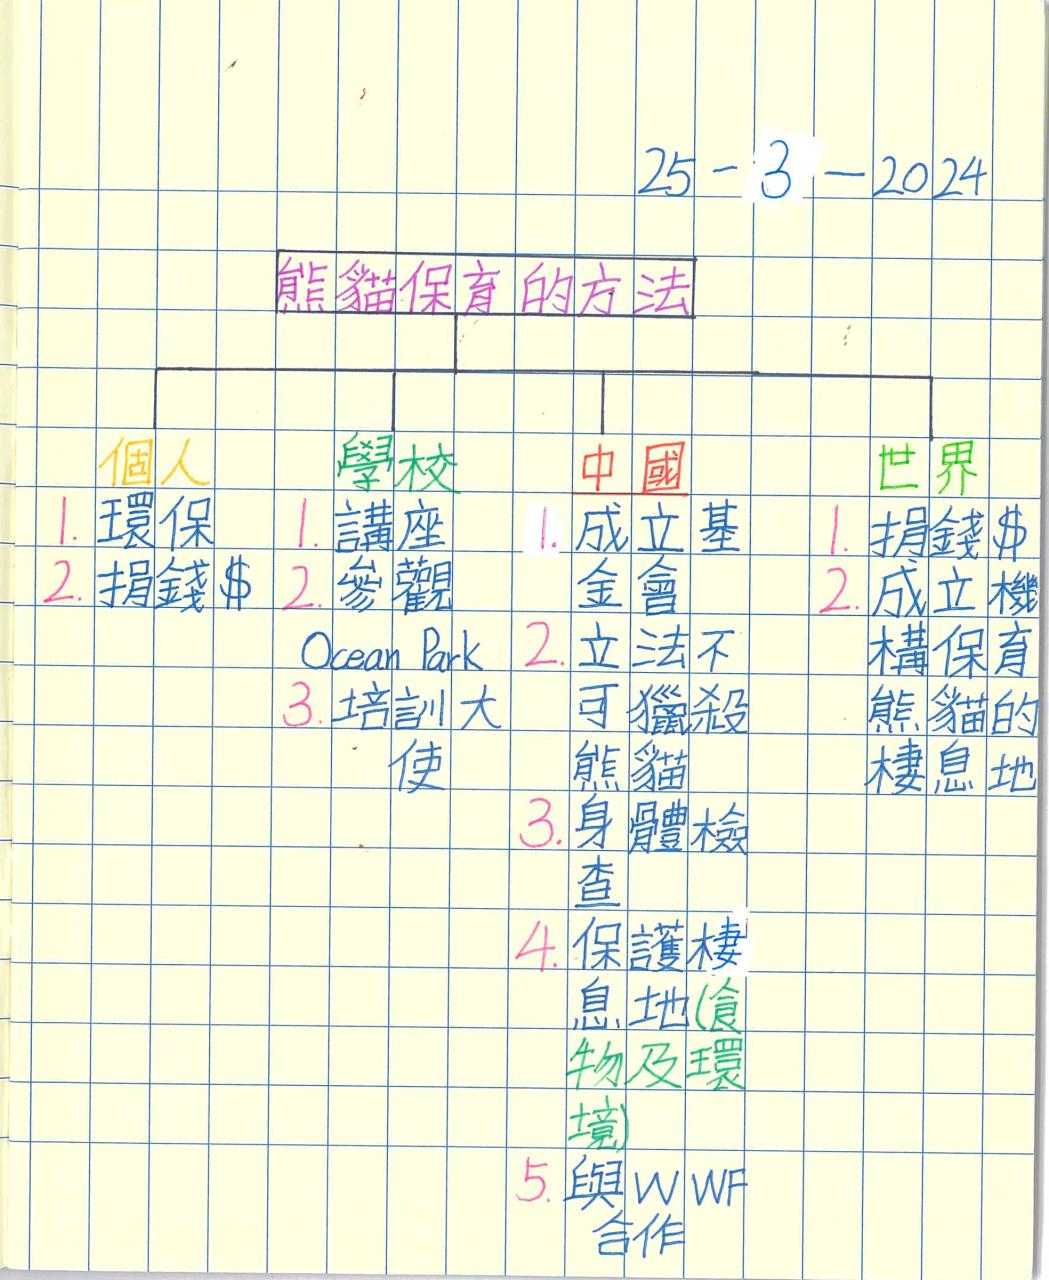 25-3-2024
熊貓保育的方法
個人
1. 環保
2. 捐錢$
學校
1. 講座
2. 參觀
Ocean Park
3. 培訓大
使
中國
1. 成立基
金會
2. 立法不
可獵殺
熊貓
3. 身體檢
查
4. 保護棲
息地(食
物及環
境)
5. 與WWF
合作
世界
1. 捐錢$
2. 成立機
構保育
熊貓的
棲息地